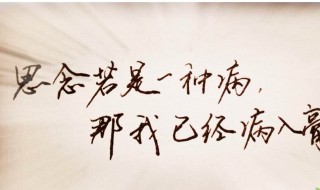 思念若是一种病,
那我已经病入膏